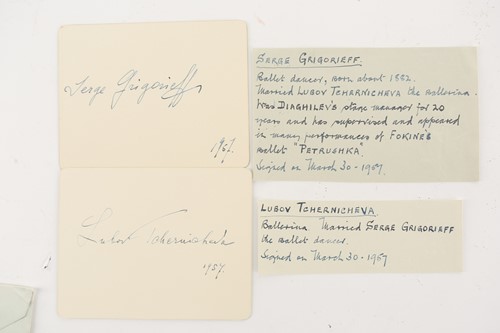 Serge Grigorieff
1957.
SERGE GRIGORIEFF.
Ballet dancer, born about 1882.
Married LUBOV TCHERNICHEVA the ballerina.
Was DIAGHILEV'S stage manager for 20
years and has supervised and appeared
in many performances of FOKINE'S
ballet "PETRUSHKA".
Signed on March 30 - 1957.
Lubov Tchernicheva
1957.
LUBOV TCHERNICHEVA
Ballerina Married SERGE GRIGORIEFF
the ballet dancer.
Signed on March 30 - 1957